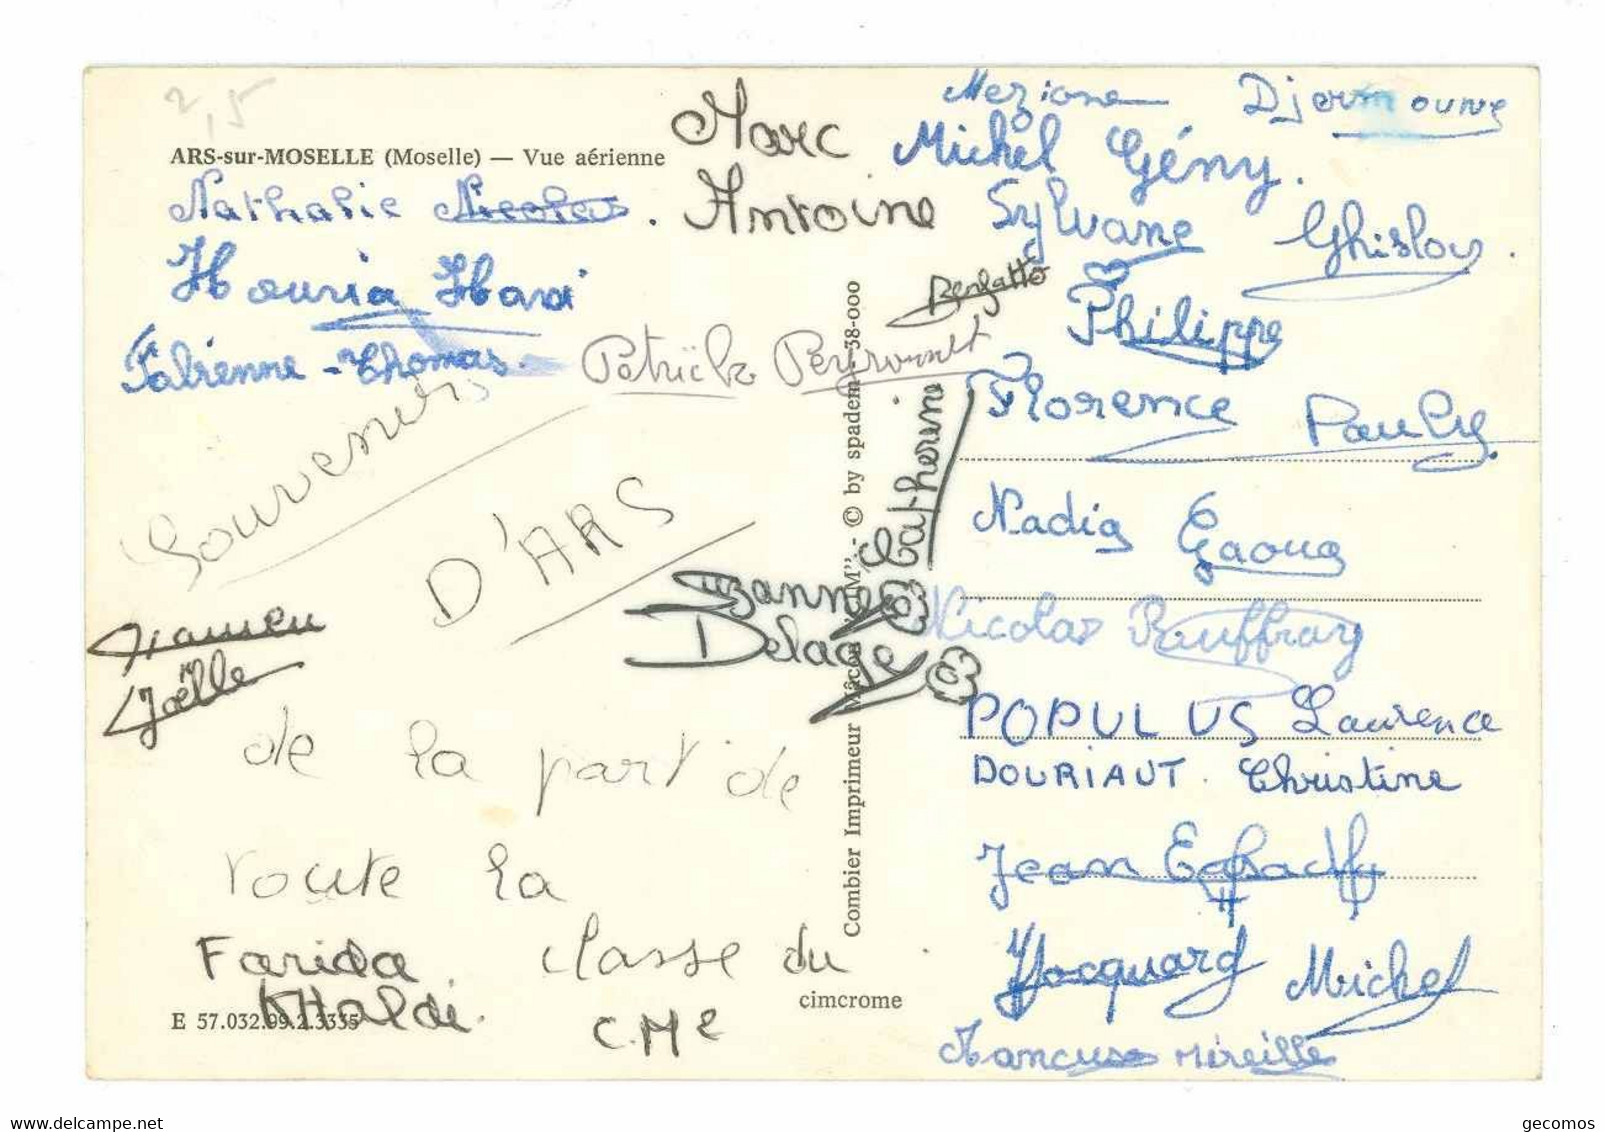 2,5
ARS-sur-MOSELLE (Moselle) — Vue aérienne
Nathalie Nicolas.
Houria
Fabienne - Thomas.
Marc
Antoine
Meziane Djermoune
Michel Gény.
Sylvane Ghislou
Philippe
Patrick
Florence Pauly
Souvenirs
D'ARS
Catherine
Suzanne
Delage
Nadia Gaoua
Nicolas Rouffray
Joëlle
POPULUS Laurence
DOURIAUT. Christine
de la part de
toute la
classe du
C.M2
Farida
Khaldi.
Jean
Jacquard Michel
Mancuso Mireille
Combier Imprimeur Mâcon "CIM". - © by spadem. 38-000
cimcrome
E 57.032.99.2.3335
www.delcampe.net
gecomos